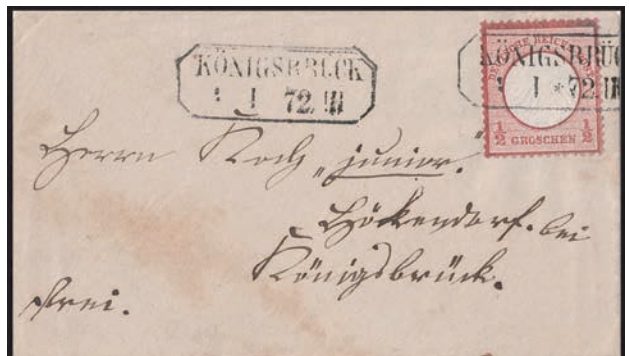 KÖNIGSBRÜCK
1 1 72 III
KÖNIGSBRÜC
1 * 72 II
DEUTSCHE REICHS-POST
1/2 GROSCHEN 1/2
Herrn Koch „junior."
Höckendorf. bei
Königsbrück.
frei.